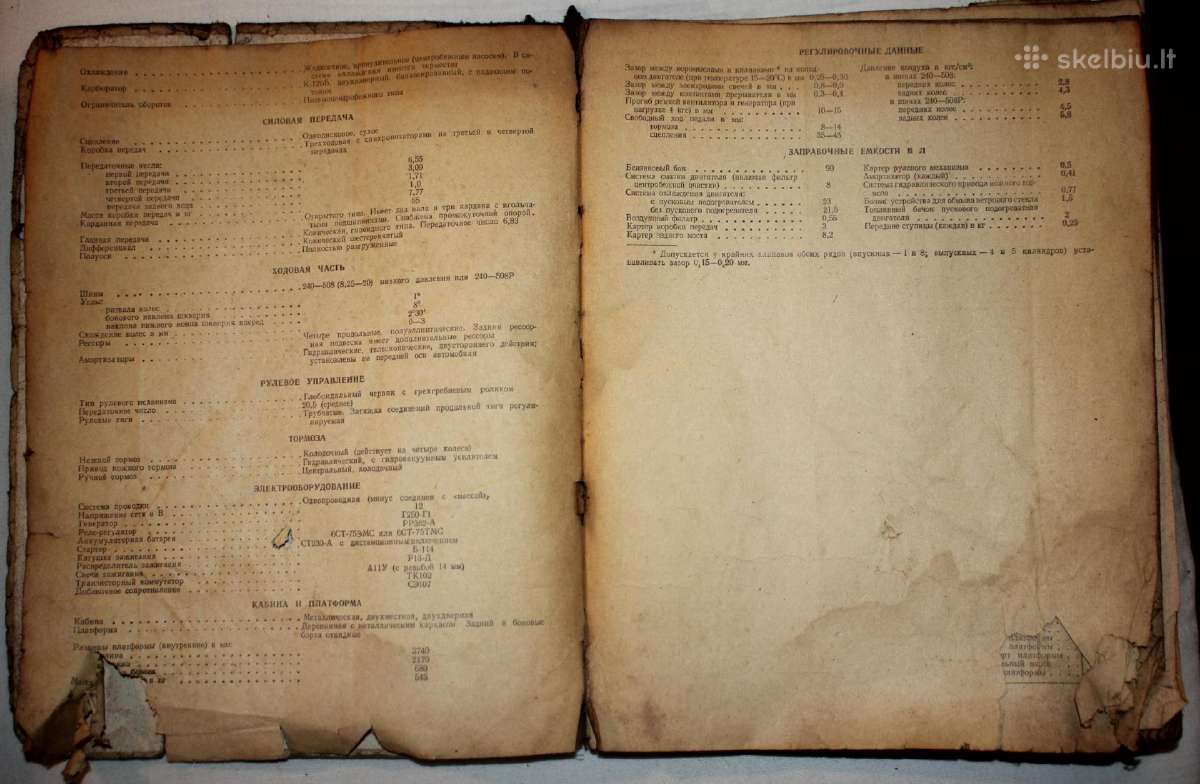 skelbiu.lt
Охлаждение . . . Жидкостное, принудительное (центробежным насосом). В си-
стеме охлаждения имеется термостат
Карбюратор . . . К-126Б, двухкамерный, балансированный, с падающим по-
током
Ограничитель оборотов . . . Пневмоцентробежного типа
СИЛОВАЯ ПЕРЕДАЧА
Сцепление . . . Однодисковое, сухое
Коробка передач . . . Трехходовая с синхронизаторами на третьей и четвертой
передачах
Передаточные числа:
первой передачи . . . 6,55
второй передачи . . . 3,09
третьей передачи . . . 1,71
четвертой передачи . . . 1,0
передачи заднего хода . . . 7,77
Масса коробки передач в кг . . . 56
Карданная передача . . . Открытого типа. Имеет два вала и три кардана с игольча-
тыми подшипниками. Снабжена промежуточной опорой.
Главная передача . . . Коническая, гипоидного типа. Передаточное число 6,83
Дифференциал . . . Конический шестеренчатый
Полуоси . . . Полностью разгруженные
ХОДОВАЯ ЧАСТЬ
Шины . . . 240—508 (8,25—20) низкого давления или 240—508Р
Углы:
развала колес . . . 1°
бокового наклона шкворня . . . 8°
наклона нижнего конца шкворня вперед . . . 2°30′
Схождение колес в мм . . . 0—3
Рессоры . . . Четыре продольные, полуэллиптические. Задняя рессор-
ная подвеска имеет дополнительные рессоры
Амортизаторы . . . Гидравлические, телескопические, двустороннего действия;
установлены на передней оси автомобиля
РУЛЕВОЕ УПРАВЛЕНИЕ
Тип рулевого механизма . . . Глобоидальный червяк с трехгребневым роликом
Передаточное число . . . 20,5 (среднее)
Рулевые тяги . . . Трубчатые. Затяжка соединений продольной тяги регули-
руемая
ТОРМОЗА
Ножной тормоз . . . Колодочный (действует на четыре колеса)
Привод ножного тормоза . . . Гидравлический, с гидровакуумным усилителем
Ручной тормоз . . . Центральный, колодочный
ЭЛЕКТРООБОРУДОВАНИЕ
Система проводки . . . Однопроводная (минус соединен с «массой»)
Напряжение сети в В . . . 12
Генератор . . . Г250-Г1
Реле-регулятор . . . РР362-А
Аккумуляторная батарея . . . 6СТ-75ЭМС или 6СТ-75ТМС
Стартер . . . СТ230-А с дистанционным включением
Катушка зажигания . . . Б-114
Распределитель зажигания . . . Р13-Д
Свечи зажигания . . . А11У (с резьбой 14 мм)
Транзисторный коммутатор . . . ТК102
Добавочное сопротивление . . . СЭ107
КАБИНА И ПЛАТФОРМА
Кабина . . . Металлическая, двухместная, двухдверная
Платформа . . . Деревянная с металлическим каркасом Задний и боковые
борта откидные
Размеры платформы (внутренние) в мм:
3740
2170
680
545
РЕГУЛИРОВОЧНЫЕ ДАННЫЕ
Зазор между коромыслами и клапанами* на холод-
ном двигателе (при температуре 15—20°С) в мм 0,25—0,30
Зазор между электродами свечей в мм . . . 0,8—0,9
Зазор между контактами прерывателя в мм . 0,3—0,4
Прогиб ремней вентилятора и генератора (при
нагрузке 4 кгс) в мм . . . 10—15
Свободный ход педали в мм:
тормоза . . . 8—14
сцепления . . . 35—45
Давление воздуха в кгс/см²:
в шинах 240—508:
передних колес . . . 2,8
задних колес . . . 4,3
в шинах 240—508Р:
передних колес . . . 4,5
задних колес . . . 5,8
ЗАПРАВОЧНЫЕ ЕМКОСТИ В Л
Бензиновый бак . . . 90
Система смазки двигателя (включая фильтр
центробежной очистки) . . . 8
Система охлаждения двигателя:
с пусковым подогревателем . . . 23
без пускового подогревателя . . . 21,5
Воздушный фильтр . . . 0,55
Картер коробки передач . . . 3
Картер заднего моста . . . 8,2
Картер рулевого механизма . . . 0,5
Амортизатор (каждый) . . . 0,41
Система гидравлического привода ножного тор-
моза . . . 0,77
Бачок устройства для обмыва ветрового стекла 1,5
Топливный бачок пускового подогревателя
двигателя . . . 2
Передние ступицы (каждая) в кг . . . 0,25
* Допускается у крайних клапанов обоих рядов (впускных — 1 и 8; выпускных — 4 и 5 цилиндров) уста-
навливать зазор 0,15—0,20 мм.
платформы
платформы
платформы